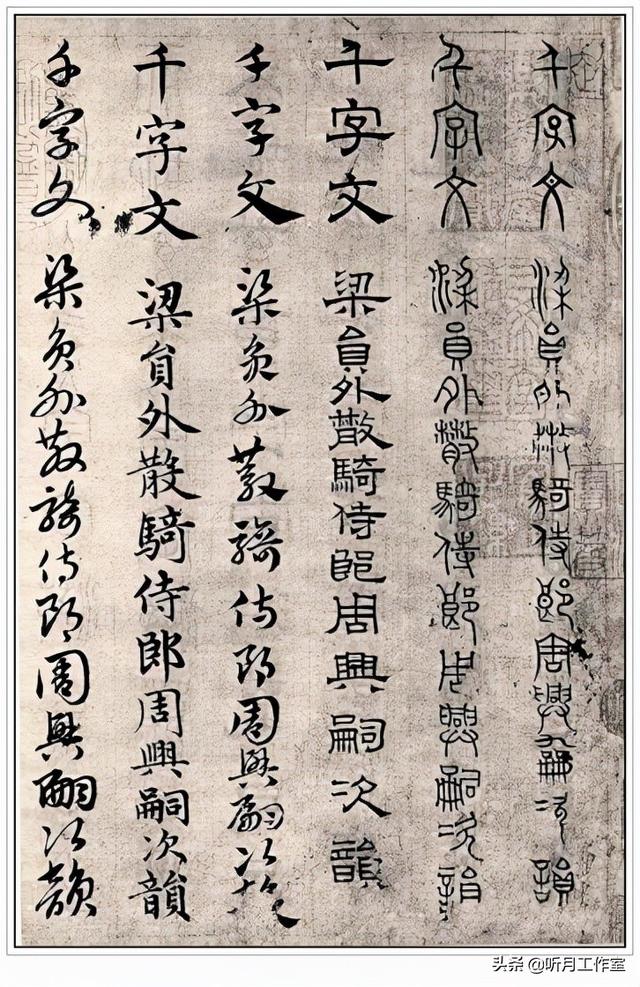 千字文 梁員外散騎侍郎周興嗣次韻
千字文 梁員外散騎侍郎周興嗣次韻
千字文 梁員外散騎侍郎周興嗣次韻
千字文 梁員外散騎侍郎周興嗣次韻
千字文 梁員外散騎侍郎周興嗣次韻
千字文 梁員外散騎侍郎周興嗣次韻
头条 @听月工作室